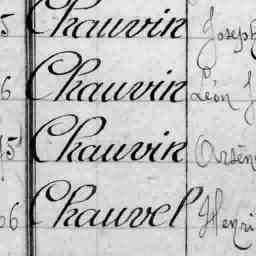 5 Chauvin Joseph
6 Chauvin Léon J
75 Chauvin Arsèn
06 Chauvel Henri